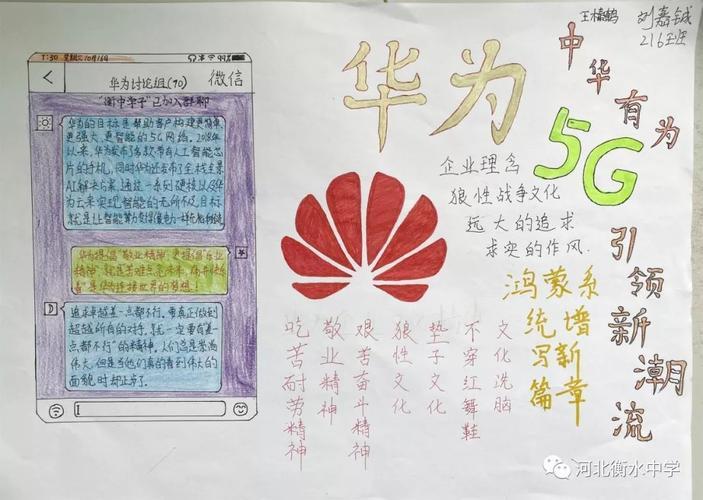 7:30 星期三10月16日 99%
华为讨论组(90) 微信
"衡中学子"已加入群聊
华为的目标是帮助客户构建更简单
更强大、更智能的5G网络。2018年
以来,华为发布了多款带有人工智能芯
片的手机,同时华为还发布了全栈全景
AI解决方案,通过一系列硬核以及华
为云来实现智能的无所不及,目标
就是让智能算力变得像电力一样
华为提倡"敬业精神"更提倡
精神
是华为连接世界的梦想!
追求卓越差一点都不行,要真正做到
超越所有的对手,就一定要有"差一
点都不行"的精神。人们总是崇尚
伟大,但是当他们真的看到伟大的
面貌时却止步了。
华为
企业理念
狼性战争文化
远大的追求
求实的作风.
鸿蒙系
统谱
写新
篇章
吃苦耐劳精神
敬业精神
艰苦奋斗精神
狼性文化
垫子文化
不穿红舞鞋
文化洗脑
王楠鹤 刘嘉铖
216班
中华有为
5G
引领新潮流
河北衡水中学